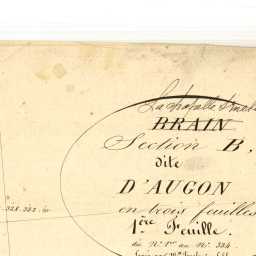 La Chapelle
BRAIN
Section B.
dite
D'AUGON
en trois feuilles
1ère Feuille.
du N° 1er au N° 334